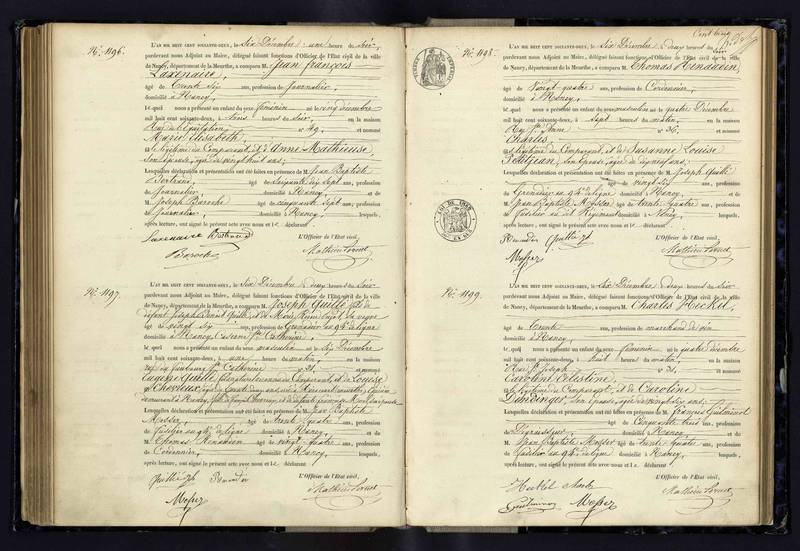 N.º 1196.
L'AN MIL HUIT CENT SOIXANTE-DEUX, le six Décembre à une heure du soir,
pardevant nous Adjoint au Maire, délégué faisant fonctions d'Officier de l'État civil de la ville
de Nancy, département de la Meurthe, a comparu M. Jean François
Laxenaire,
âgé de trente six ans, profession de journalier,
domicilié à Nancy,
lequel nous a présenté un enfant du sexe féminin né le cinq décembre
mil huit cent soixante-deux, à trois heures du soir, en la maison
Rue de l'Équitation, n° 49, et nommé
Marie Élisabeth,
et légitime du Comparant, et d'Anne Mathieuse,
son épouse, âgée de vingt huit ans;
Lesquelles déclaration et présentation ont été faites en présence de M. Jean Baptiste
Bertrand, âgé de soixante dix sept ans, profession
de journalier, domicilié à Nancy, et de
M. Joseph Baroche âgé de cinquante sept ans, profession
de journalier, domicilié à Nancy, lesquels,
après lecture, ont signé le présent acte avec nous et le déclarant
L'Officier de l'État civil,
Laxenaire Bertrand
Baroche
N.º 1197.
L'AN MIL HUIT CENT SOIXANTE-DEUX, le six Décembre à deux heures du soir
pardevant nous Adjoint au Maire, délégué faisant fonctions d'Officier de l'État civil de la ville
de Nancy, département de la Meurthe, a comparu M. Joseph Guille fils de
âgé de vingt six ans, profession de Grenadier au 94e de ligne
domicilié à Nancy, Caserne Ste Catherine,
lequel nous a présenté un enfant du sexe masculin né le six Décembre
mil huit cent soixante-deux, à une heure du matin, en la maison
n° 21, et nommé
Eugène Guille,
Lesquelles déclaration et présentation ont été faites en présence de M. Jean Baptiste
Mosser, âgé de trente quatre ans, profession
de fusilier au 94e de ligne domicilié à Nancy, et de
M. Thomas Renaudin âgé de vingt quatre ans, profession
de Cordonnier, domicilié à Nancy, lesquels,
après lecture, ont signé le présent acte avec nous et le déclarant
L'Officier de l'État civil,
N.º 1198.
L'AN MIL HUIT CENT SOIXANTE-DEUX, le six Décembre à deux heures du soir
pardevant nous Adjoint au Maire, délégué faisant fonctions d'Officier de l'État civil de la ville
de Nancy, département de la Meurthe, a comparu M. Thomas Renaudin,
âgé de vingt quatre ans, profession de Cordonnier,
domicilié à Nancy,
lequel nous a présenté un enfant du sexe masculin né le quatre Décembre
mil huit cent soixante-deux, à sept heures du matin, en la maison
Rue Ste Anne n° 36, et nommé
Charles,
et légitime du Comparant, et de Susanne Louise
Petitjean, son épouse, âgée de dix neuf ans;
Lesquelles déclaration et présentation ont été faites en présence de M. Joseph Guille
âgé de vingt six ans, profession
de Grenadier au 94e de ligne domicilié à Nancy et de
M. Jean Baptiste Mosser âgé de trente quatre ans, profession
de fusilier au dit Régiment domicilié à Nancy, lesquels,
après lecture, ont signé le présent acte avec nous et le déclarant
L'Officier de l'État civil,
N.º 1199.
L'AN MIL HUIT CENT SOIXANTE-DEUX, le six Décembre à deux heures du soir
pardevant nous Adjoint au Maire, délégué faisant fonctions d'Officier de l'État civil de la ville
de Nancy, département de la Meurthe, a comparu M. Charles Heckel,
âgé de trente ans, profession de marchand de vin
domicilié à Nancy,
lequel nous a présenté un enfant du sexe féminin né le quatre décembre
mil huit cent soixante-deux, à huit heures du matin, en la maison
Rue St Joseph n° 31, et nommé
Caroline Célestine,
et légitime du Comparant, et de Caroline
Lesquelles déclaration et présentation ont été faites en présence de M. François
âgé de Cinquante trois ans, profession
domicilié à Nancy et de
M. Jean Baptiste Mosser âgé de trente quatre ans, profession
de fusilier au 94e de ligne domicilié à Nancy, lesquels,
après lecture, ont signé le présent acte avec nous et le déclarant
L'Officier de l'État civil,